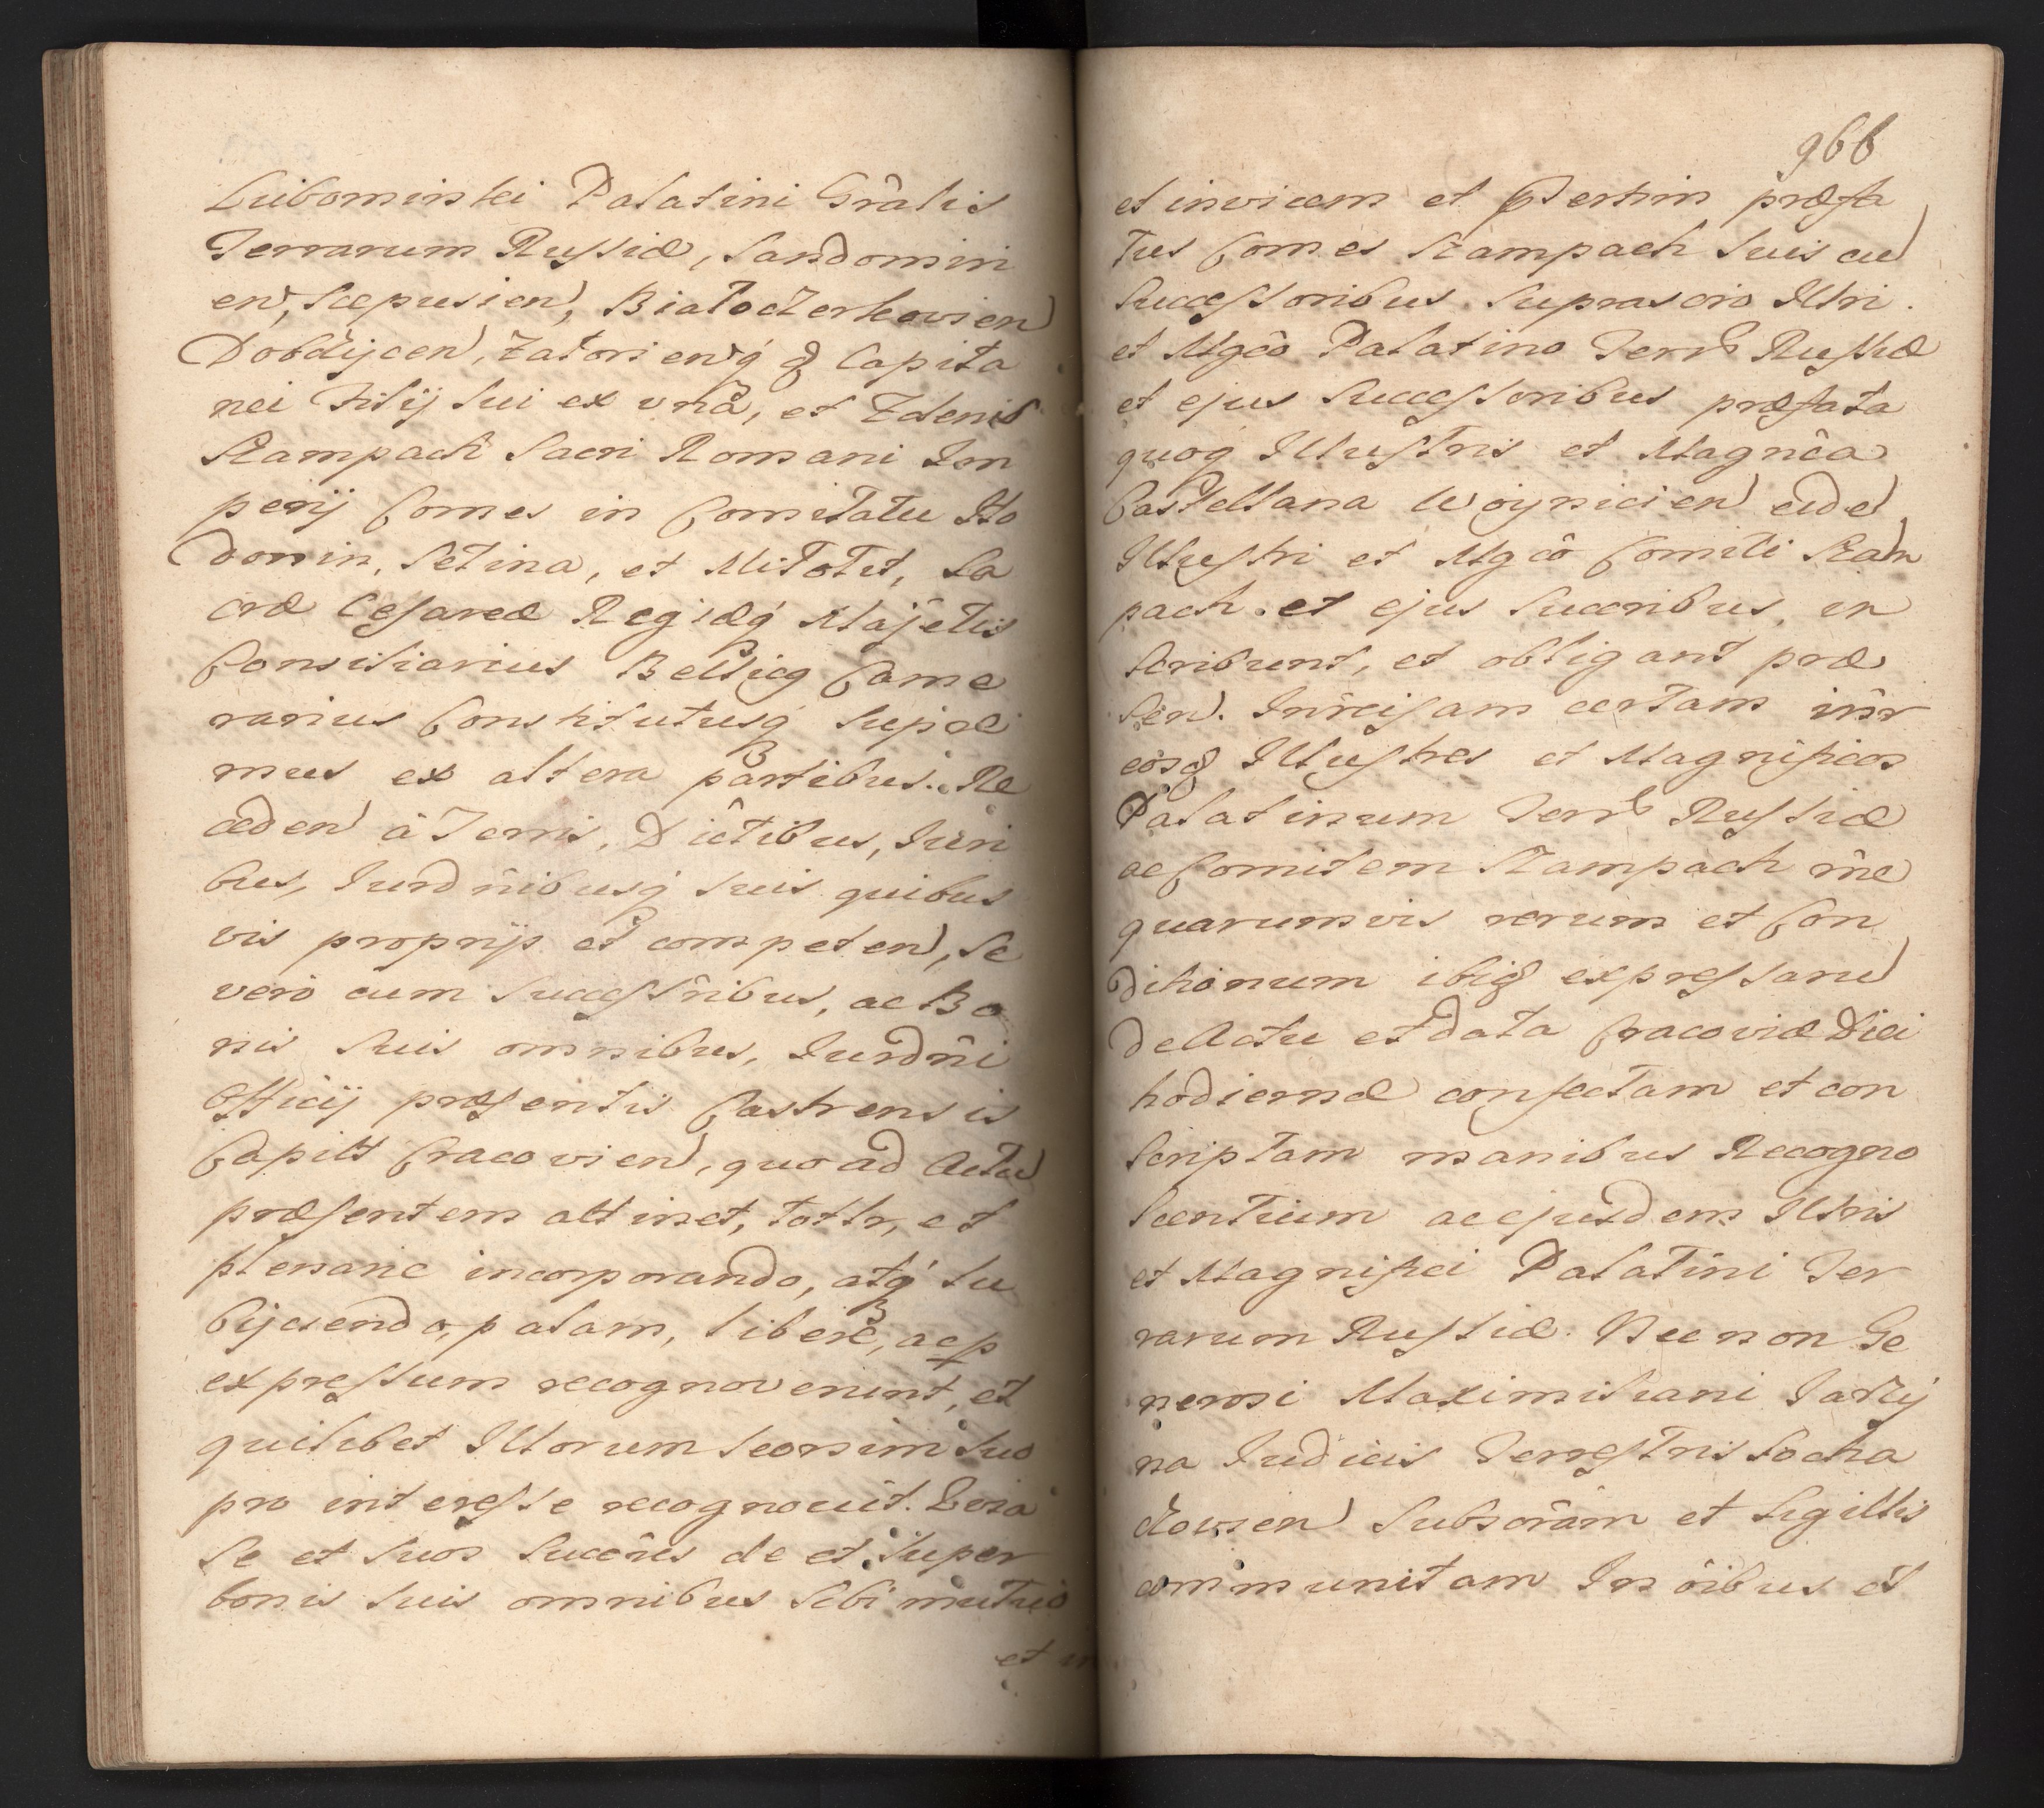 Lubomirskei Palatini Gr̃alis
Terrarum Russiæ, Sandomiri
en, Scepusien, Białoczerkowien
Dobczycen, Zatorienq̃ & Capita
nei Filij sui ex vnâ, et Zdenib
Kampach Sacri Romani Im
perij Comes in Comitatu Ho
donin, Setina, et Mitotet, Sa
cræ Cesareæ Regiæq́ Majẽtis
Consiliarius Bellicq Came
rarius Constitutusq́ Supre
mus ex altera partibus. Re
ceden â Terris, Dictibus, Juri
bus, Jurdnĩbusq́ suis quibus
vis proprijs et competen, Se
verò cum Successr̃ibus, ac Bo
nis Suis omnibus, Jurdñi
Officij præsentis Castrensis
Capitt Cracovien, quo ad Actu
præsentem attinet, tottr, et
plenarie incorporando, atq́ su
bijciendo, palam, liberè, ac p
expressum recognoverunt, et
quilibet Illorum seorsim suo
pro interesse recognovit. Quia
Se et Suos Succẽres de et super
bonis Suis omnibus Sibi mutuò
et in
966
et invicem et Pertim præfa
tus Comes Kampach Suis cu
Successoribus Suprascrõ Illri
et Mgcõ Palatino Terr Russiæ
et ejus Successoribus præfata
quoq́ Illustris et Magncã
Castellana Woynicien eide
Illustri et Mgcõ Comiti Kam
pach et ejus Succribus, in
scribunt, et obligant præ
sen. Inrcisam certam intr
eosq Illustres et Magnificos
Palatinum Terr Russiæ
ac Comitem Kampach rñe
quarumvis rerum et Con
ditionum ibiq expressaru
de Actu et data Cracoviæ Diei
hodiernæ confectam et con
scriptam manibus Recogno
scentium ac ejusdem Illris
et Magnifici Palatini Ter
rarum Russiæ. Nec non Ge
nerosi Maximiliani Jarzy
na Judicis Terrestris Socha
czowien Subscrãm et Sigillis
communitam In õibus et